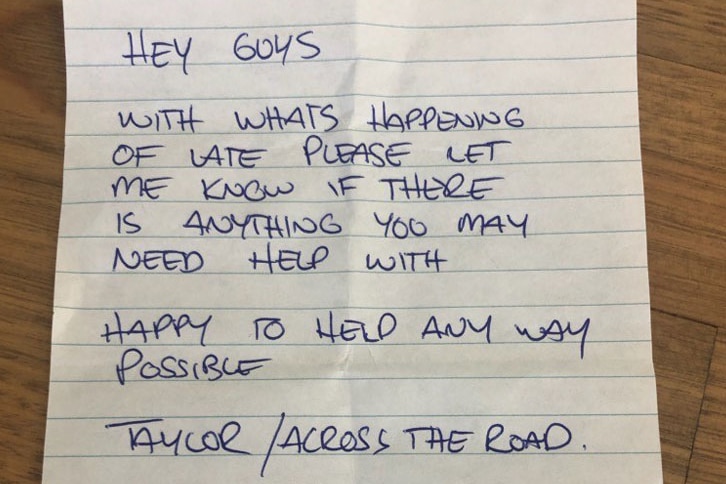 HEY GUYS
WITH WHATS HAPPENING
OF LATE PLEASE LET
ME KNOW IF THERE
IS ANYTHING YOU MAY
NEED HELP WITH
HAPPY TO HELP ANY WAY
POSSIBLE
TAYLOR / ACROSS THE ROAD.